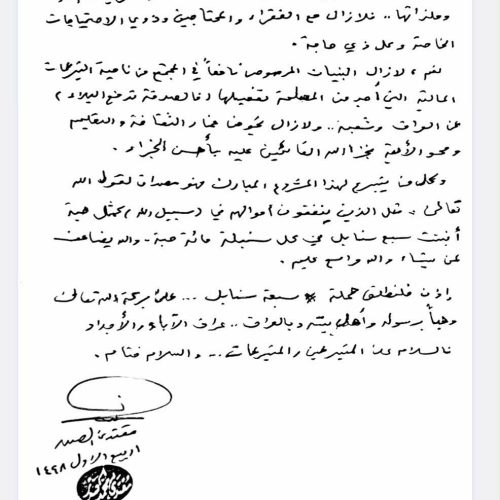 وملزاتها.. فلازال مع الفقراء والمحتاجين وذوي الاحتياجات
الخاصة وكل ذي حاجة.
نعم، لازال البنيان المرصوص نافعاً في المجتمع من ناحية التبرعات
المالية التي أجد من المصلحة تفعيلها فالصدقة تدفع البلاء
عن العراق وشعبه.. ولازال يخوض غمار الثقافة والتعليم
ومحو الأمية فجزا الله القائمين عليه بأحسن الجزاء.
وكل من يتبرع لهذا المشروع المبارك فهو مصداق لقول الله
تعالى: مثل الذين ينفقون أموالهم في سبيل الله كمثل حبة
أنبتت سبع سنابل في كل سنبلة مائة حبة والله يضاعف
لمن يشاء والله واسع عليم.
إذن فلنطلق حملة سبعة سنابل... على بركة الله تعالى
وحباً برسوله وأهل بيته وبالعراق.. عراق الآباء والأجداد
فالسلام على المتبرعين والمتبرعات... والسلام ختام.
مقتدى الصدر
ربيع الأول ١٤٣٨